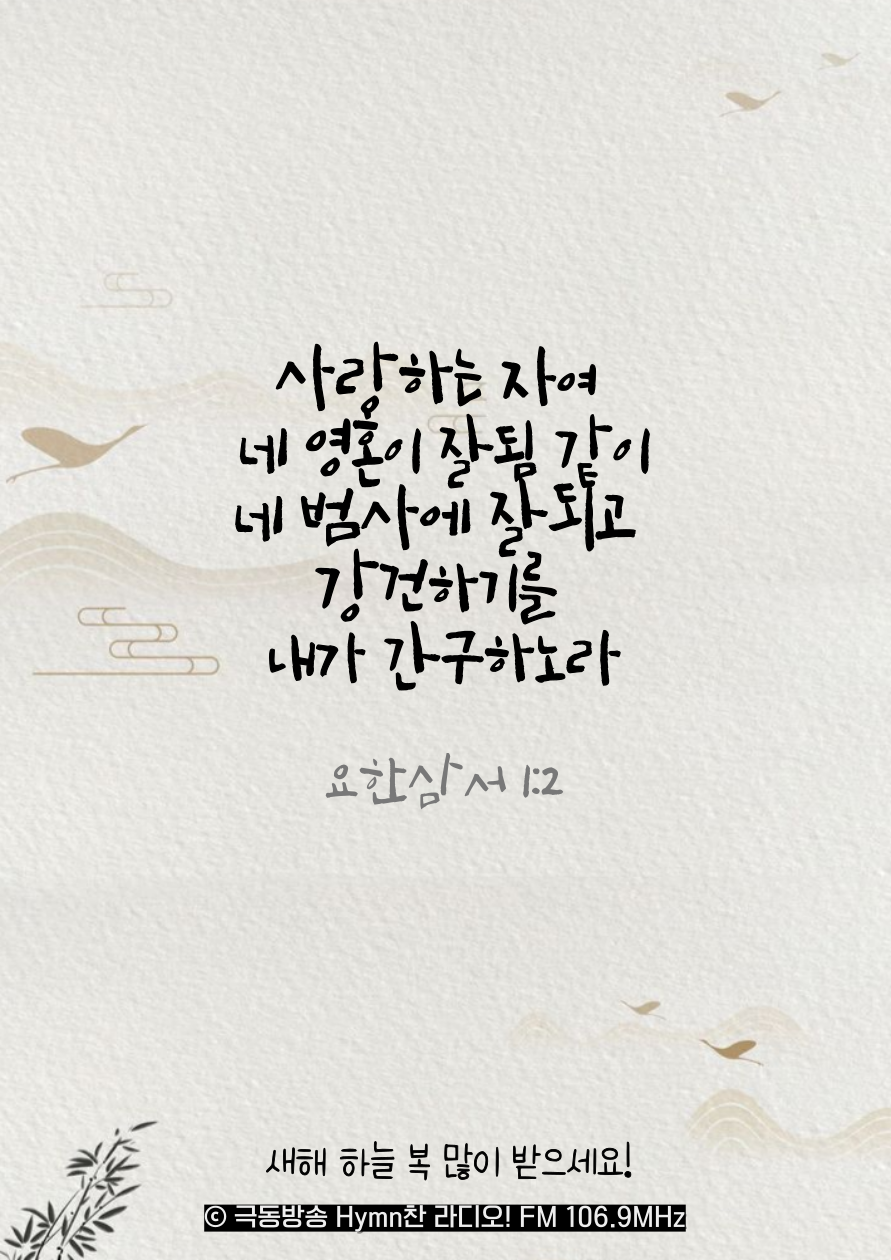 사랑하는 자여
네 영혼이 잘됨 같이
네 범사에 잘되고
강건하기를
내가 간구하노라
요한삼서 1:2
새해 하늘 복 많이 받으세요!
© 극동방송 Hymn찬 라디오! FM 106.9MHz